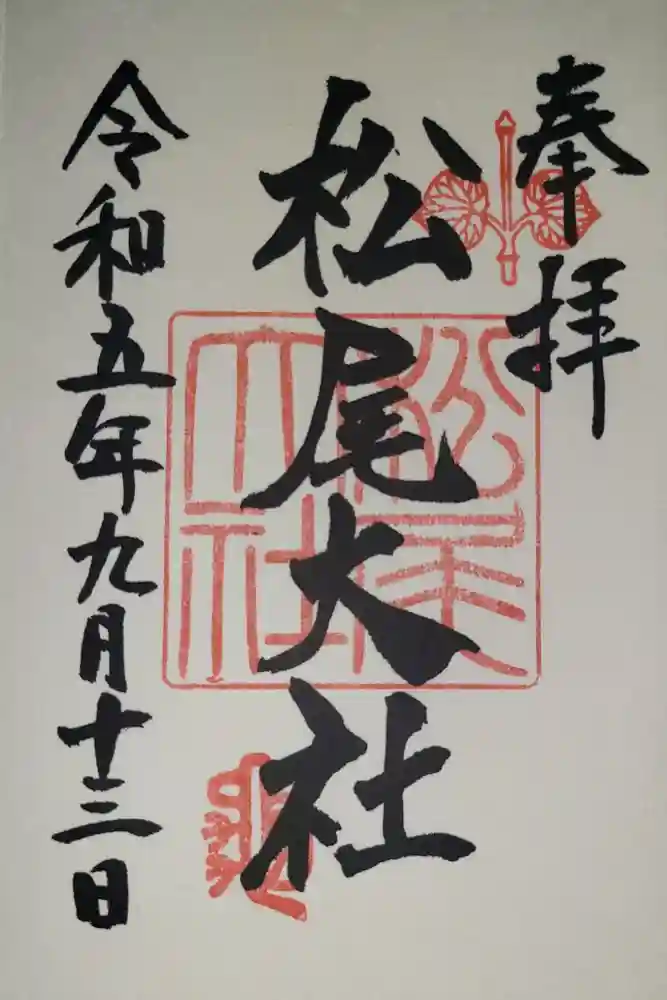 奉拝
松尾大社
令和五年九月十三日
松尾大社
亀